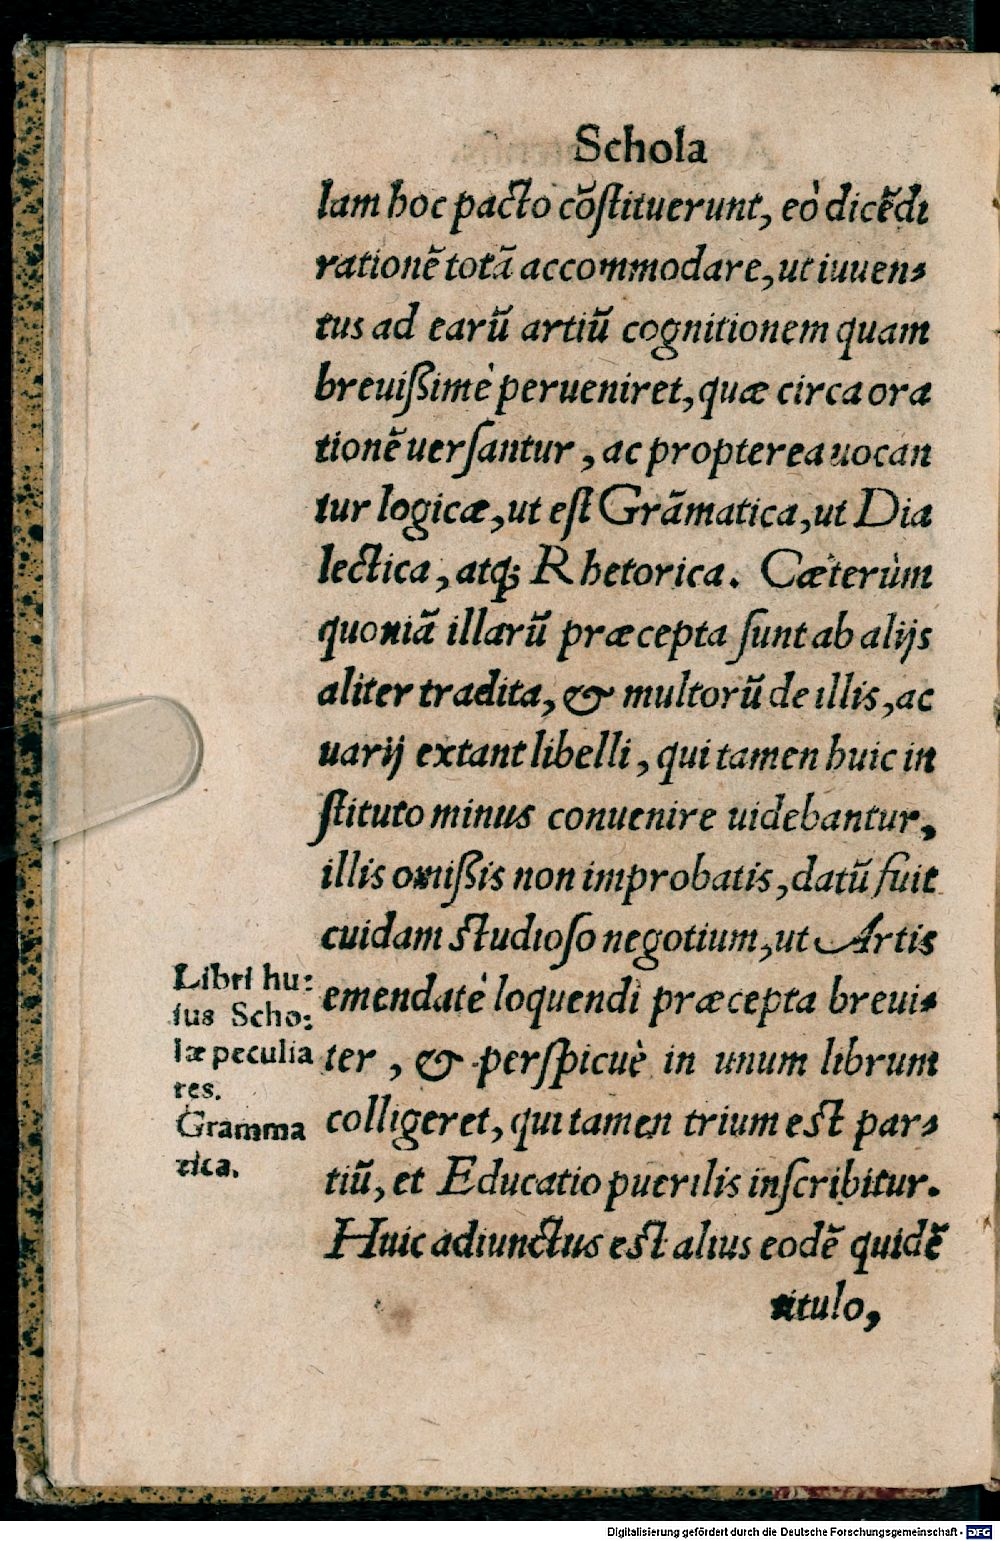 Schola
lam hoc pacto cõstituerunt, eò dicẽdi
rationẽ totã accommodare, ut iuuen-
tus ad earũ artiũ cognitionem quam
breuißimè perueniret, quæ circa ora
tionẽ uersantur, ac propterea uocan
tur logicæ, ut est Grãmatica, ut Dia
lectica, atq; Rhetorica. Cæterùm
quoniã illarũ præcepta sunt ab alijs
aliter tradita, & multorũ de illis, ac
uarij extant libelli, qui tamen huic in
stituto minus conuenire uidebantur,
illis omißis non improbatis, datũ fuit
cuidam studioso negotium, ut Artis
emendatè loquendi præcepta breui-
ter, & perspicuè in unum librum
colligeret, qui tamen trium est par-
tiũ, et Educatio puerilis inscribitur.
Huic adiunctus est alius eodẽ quidẽ
titulo,
Libri hu:
ius Scho:
læ peculia
res.
Gramma
tica.
Digitalisierung gefördert durch die Deutsche Forschungsgemeinschaft - DFG